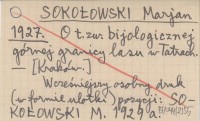 SOKOŁOWSKI Marjan
1927. O t.zw. bijologicznej
górnej granicy lasu w Tatrach.
— [Kraków.]
Wcześniejszy osobny druk
(w formie ulotki) pozycji: SO-
KOŁOWSKI M. 1928a.